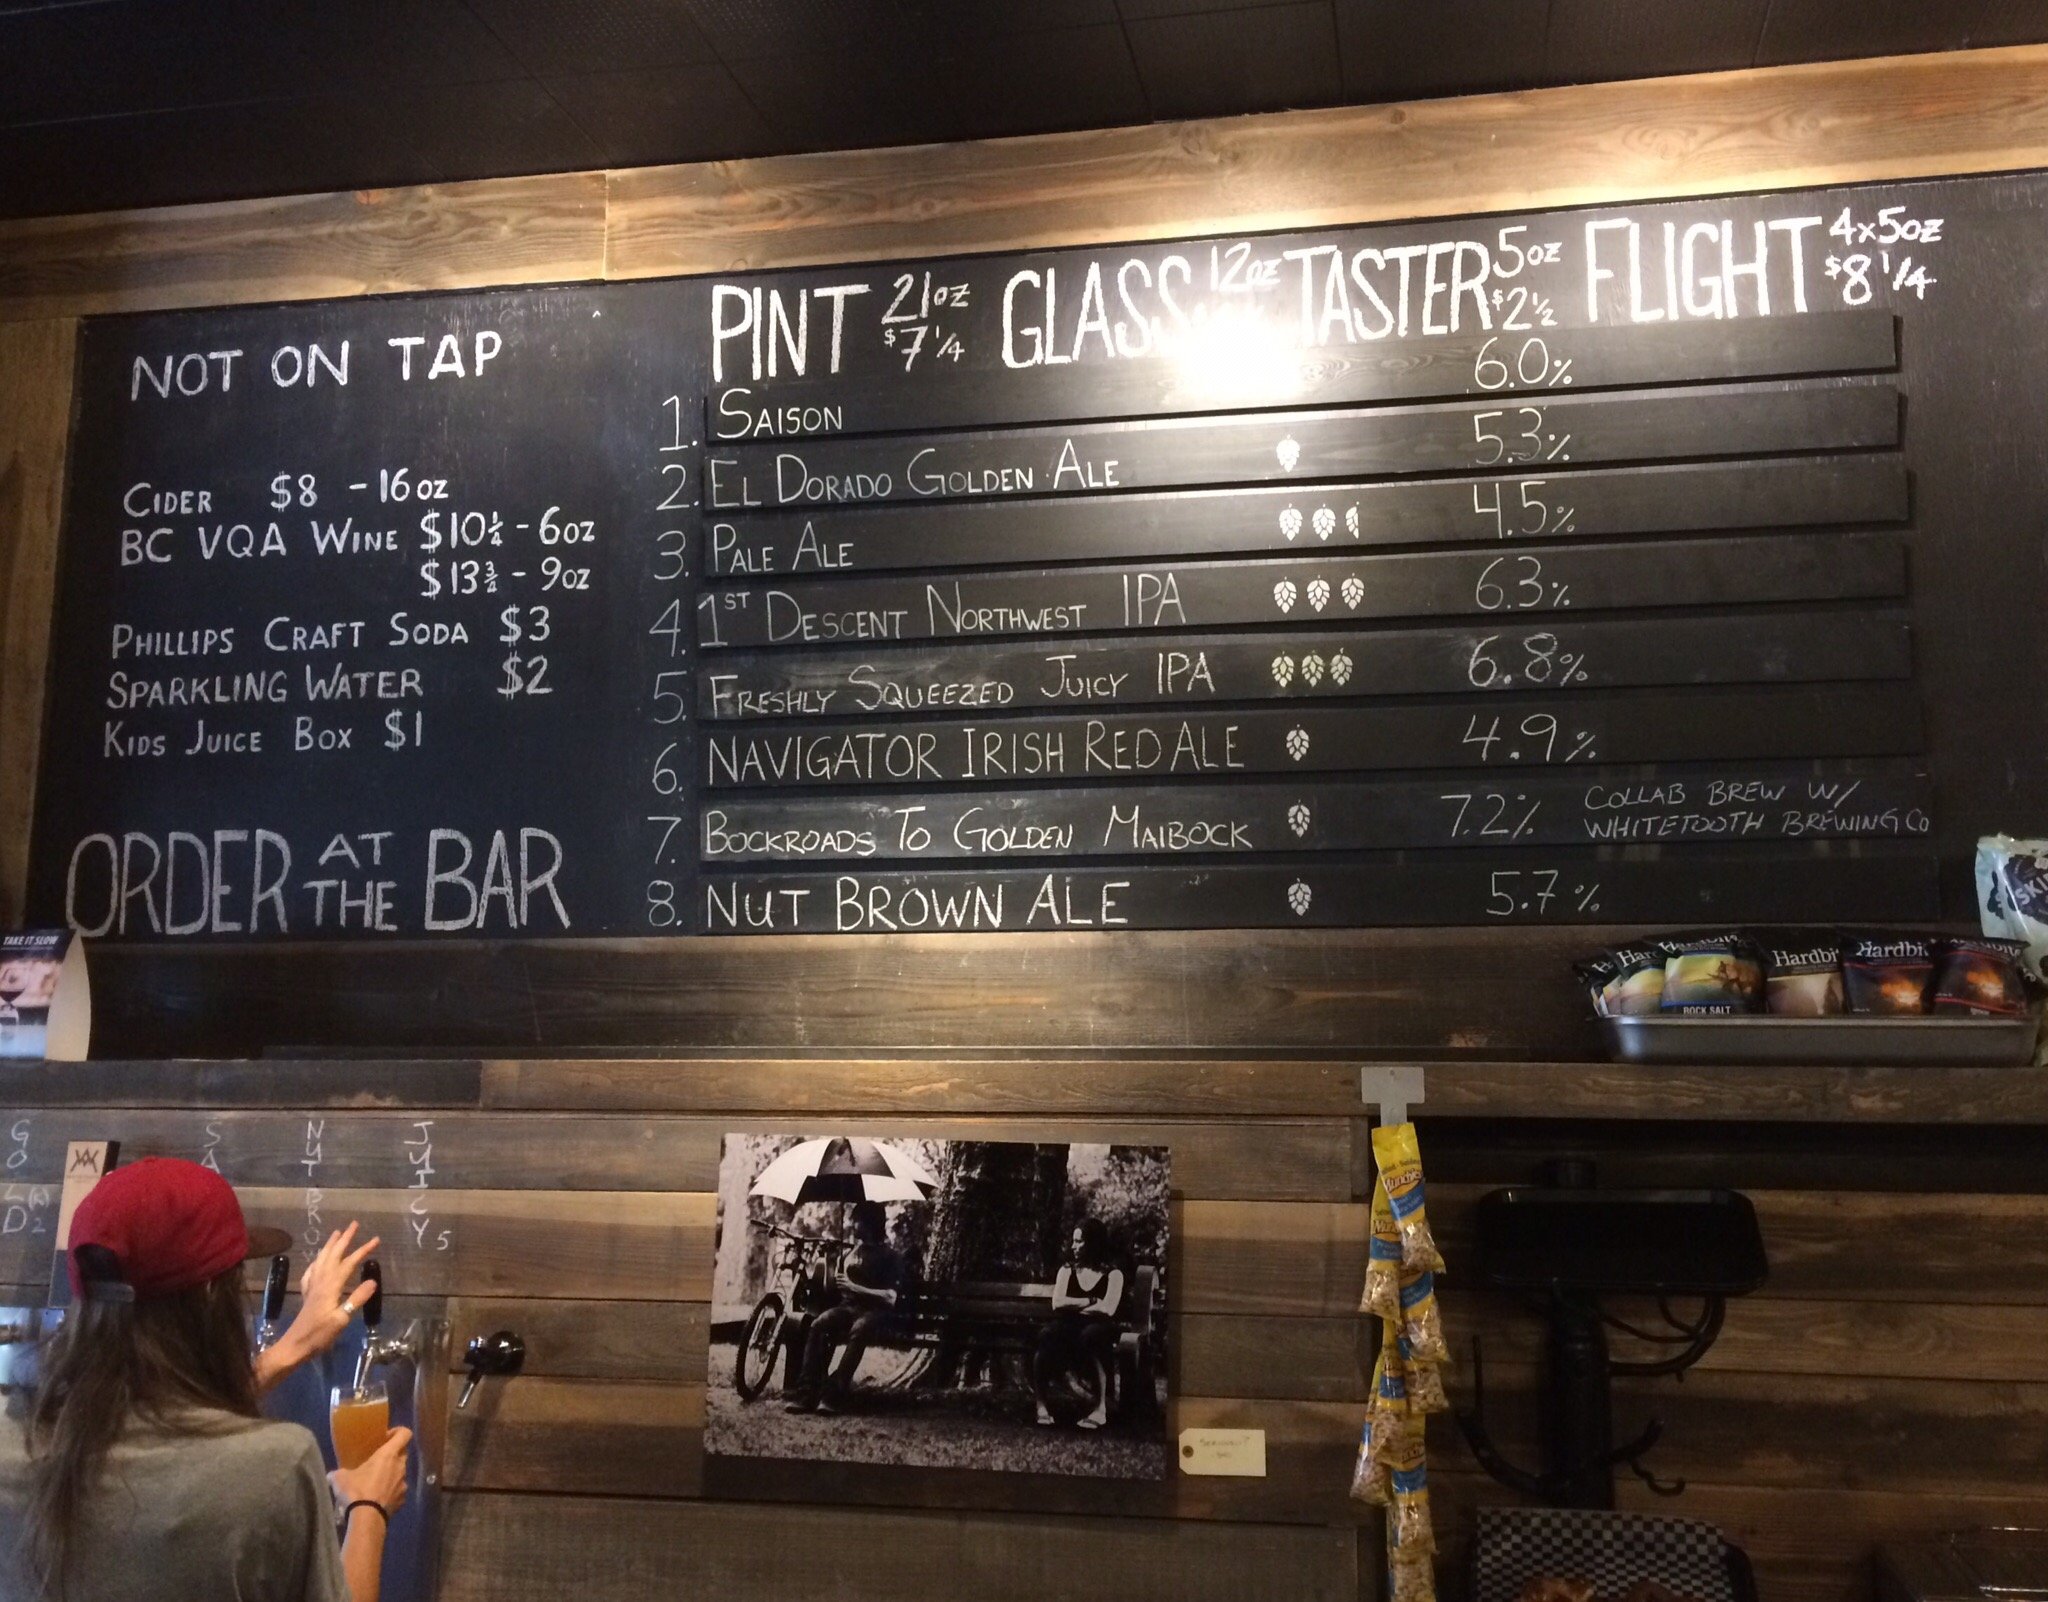 PINT 21oz $7 1/4 GLASS 12oz TASTER 5oz $2 1/2 FLIGHT 4x5oz $8 1/4
NOT ON TAP
CIDER $8 - 16oz
BC VQA WINE $10 1/4 - 6oz
$13 3/4 - 9oz
PHILLIPS CRAFT SODA $3
SPARKLING WATER $2
KIDS JUICE BOX $1
ORDER AT THE BAR
1. SAISON 6.0%
2. EL DORADO GOLDEN ALE 5.3%
3. PALE ALE 4.5%
4. 1ST DESCENT NORTHWEST IPA 6.3%
5. FRESHLY SQUEEZED JUICY IPA 6.8%
6. NAVIGATOR IRISH RED ALE 4.9%
7. BOCKROADS TO GOLDEN MAIBOCK 7.2% COLLAB BREW W/
WHITETOOTH BREWING CO
8. NUT BROWN ALE 5.7%
TAKE IT SLOW
Hardbi
Hardbi
ROCK SALT
GOLD 2
SA
NUT BROW
JUICY 5
Munchies